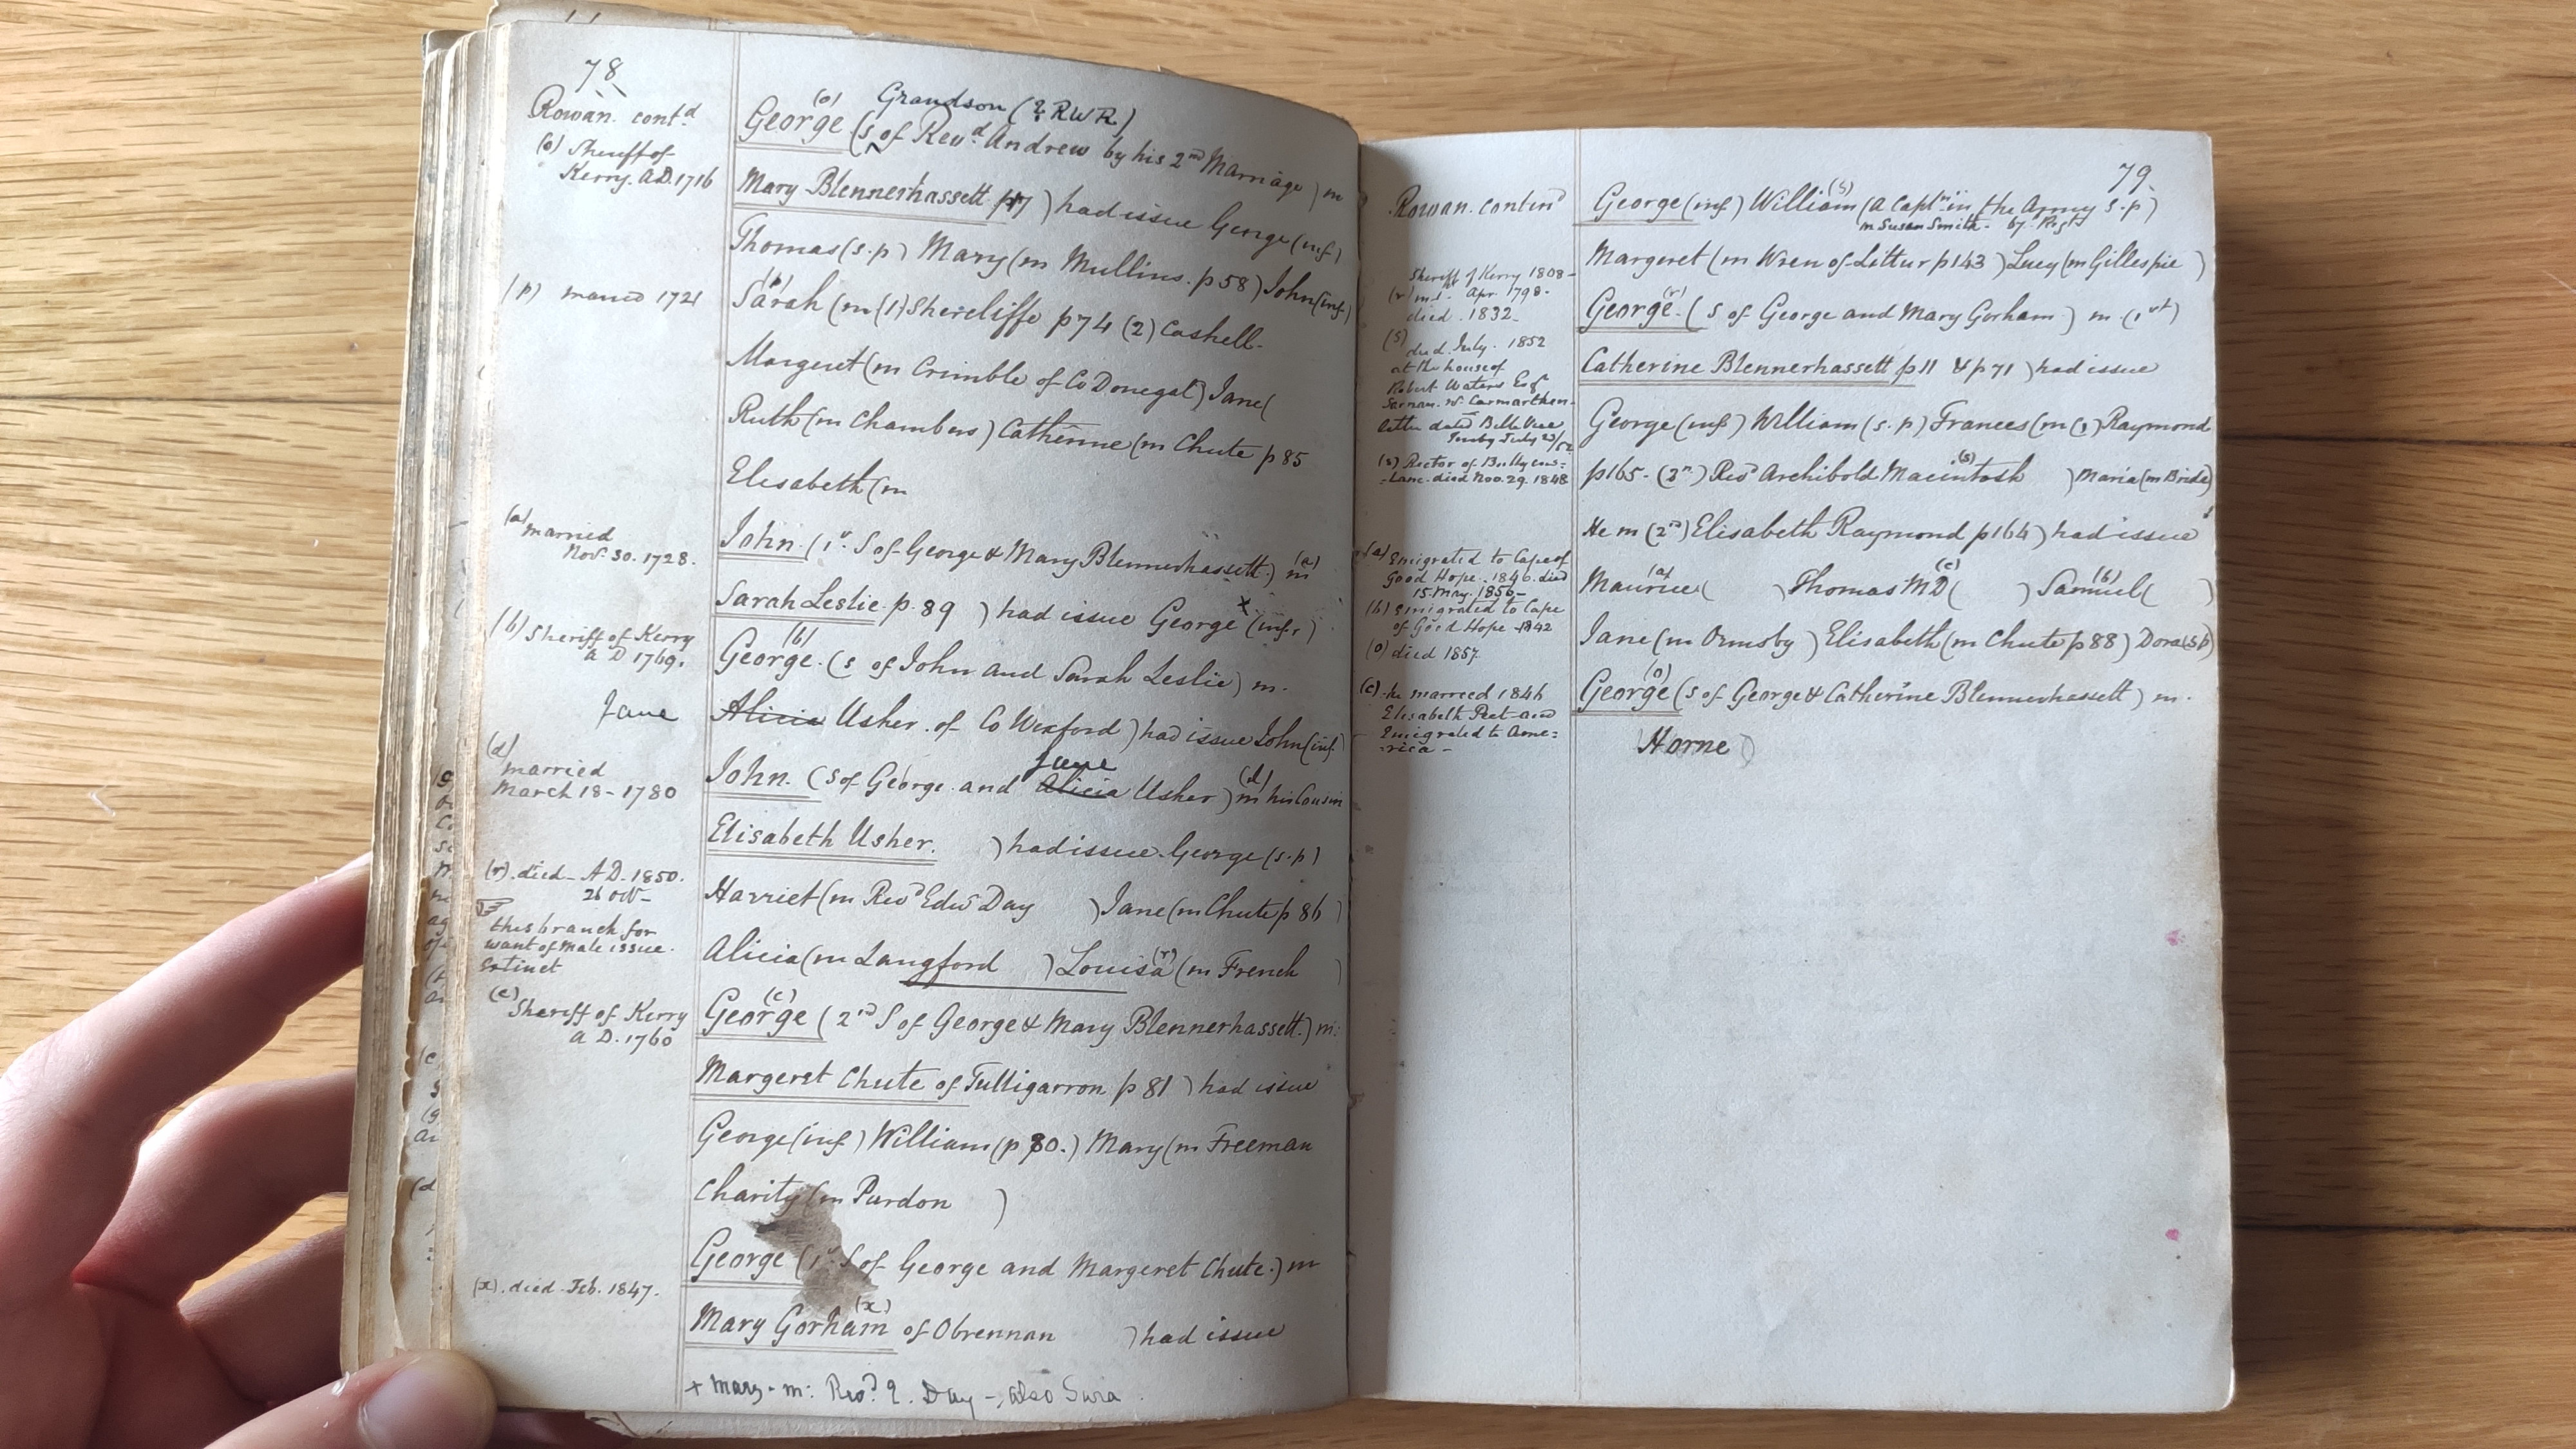 78
Rowan. contd
(o) Sheriff of
Kerry. A.D. 1716
Grandson (? RWR)
(o)
George (s of Revd. Andrew by his 2nd Marriage) m
Mary Blennerhassett p 7 ) had issue George (inf)
Thomas (s.p) Mary (m Mullins. p 58) John (inf.)
(p) married 1721
(p)
Sarah (m (1) Shercliffe p 74 (2) Cashell.
Margeret (m Crimble of Co Donegal) Jane (
Ruth (m Chambers) Catherine (m Chute p 85
Elisabeth (m
(a) married
Novr. 30. 1728.
John. (1st. S of George & Mary Blennerhassett.) m (a)
Sarah Leslie. p. 89 ) had issue George x (infr)
(b) Sheriff of Kerry
A D 1769.
(b)
George. (s of John and Sarah Leslie) m.
Jane
Alicia Usher. of Co Wexford) had issue John (inf.)
(d)
married
March 18 - 1780
Jane
John. (s of George and Alicia Usher) m (d) his Cousin
Elisabeth Usher. ) had issue. George (s.p)
(r). died - A.D. 1850.
26 Oct -
Harriet (m Revd Edwd Day ) Jane (m Chute p 86 )
this branch for
want of male issue.
extinct
Alicia (m Langford ) Louisa (r) (m French )
(c)
Sheriff of Kerry
A D. 1760
(c)
George (2nd S of George & Mary Blennerhassett.) m:
Margeret Chute of Tulligarron p 81 ) had issue
George (inf) William (p 80.) Mary (m Freeman
Charity (m Purdon )
George (1st. S of George and Margeret Chute.) m
(x). died Feb. 1847.
(x)
Mary Gorham of Obrennan ) had issue
+ Mary - m: Revd. Day - also Sara.
79.
Rowan. contind
George (inf) William (s) (a Captn in the Army s.p)
m Susan Smith -
Margeret (m Wren of Littur p 143 ) Lucy (m Gillespie )
Sheriff of Kerry 1808 -
(r) Apr. 1798.
died. 1832.
George. (r) (s of George and Mary Gorham ) m. (1st)
(s)
died. July. 1852
at the house of
Robert Waters Esqr
Carmarthen -
letter dated
Catherine Blennerhassett p 11 & p 71 ) had issue
George (inf) William (s.p) Frances (m (1) Raymond
(s) Rector of
died Nov. 29. 1848
p 165 - (2n.) Revd Archibold Macintosh (s) ) Maria (m Bride)
He m (2nd) Elisabeth Raymond p 164) had issue
(a) Emigrated to Cape of
Good Hope. 1846. died
15 May. 1856 -
Maurice (a) ( ) Thomas M D (c) ( ) Samuel (b) ( )
(b) Emigrated to Cape
of Good Hope 1842
Jane (m Ormsby ) Elisabeth (m Chute p 88) Dora (s.p)
(o) died 1857.
(o)
George (s of George & Catherine Blennerhassett) m.
(c) he married 1846
Elisabeth Peet and
Emigrated to Ame:
:rica -
Horne )